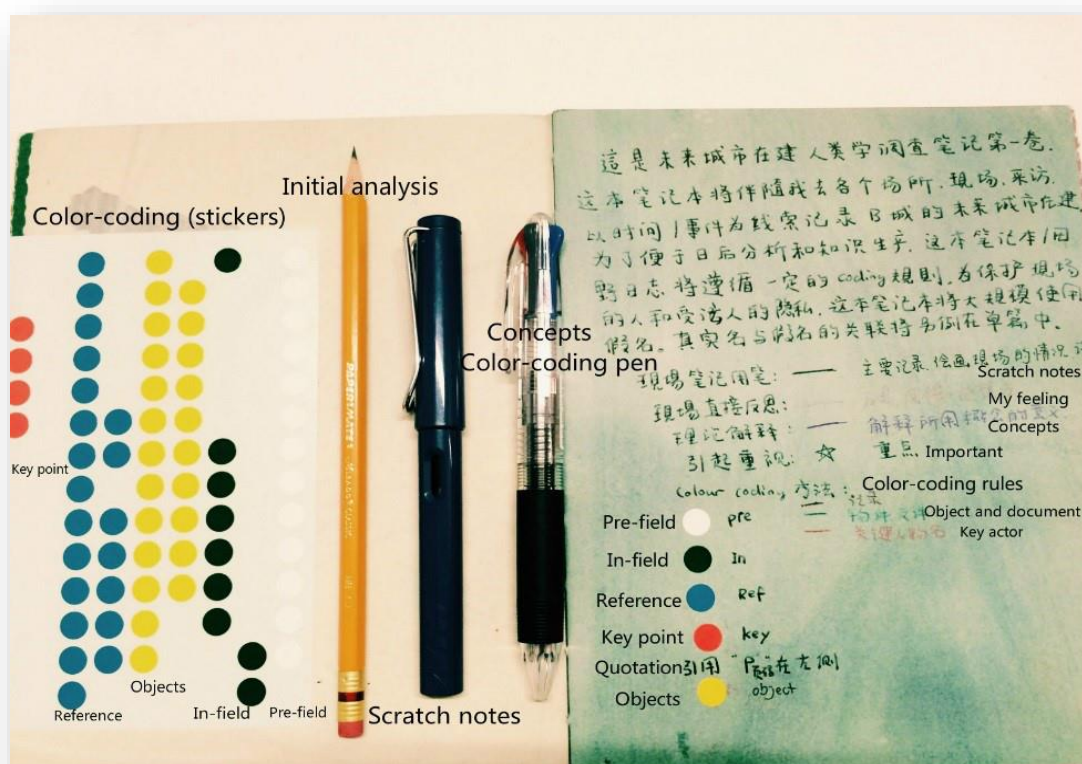 Initial analysis
Color-coding (stickers)
Key point
Objects
Reference
In-field
Pre-field
PAPERMATE
Scratch notes
Concepts
Color-coding pen
這是未来城市在建人类学调查笔记第一卷.
这本笔记本将伴随我去各个场所、現场、采访.
以时间/事件为线索记录B城的未来城市在建
为了便于日后分析和知识生产,这本笔记本/田
野日志将遵循一定的coding规则,为保护现场
的人和受访人的隐私,这本笔记本将大规模使用
假名。真实名与假名的关联将另例在单篇中.
現场笔记用笔: — 主要记录绘画现场的情况
Scratch notes
現场直接反思: —
My feeling
理论解释: — 解释所用概念的意义
Concepts
引起重视: ☆ 重点
Important
Colour coding 方法:
Color-coding rules
记录
Object and document
Key actor
Pre-field pre
In-field In
Reference Ref
Key point key
Quotation 引用 在左侧
Objects object